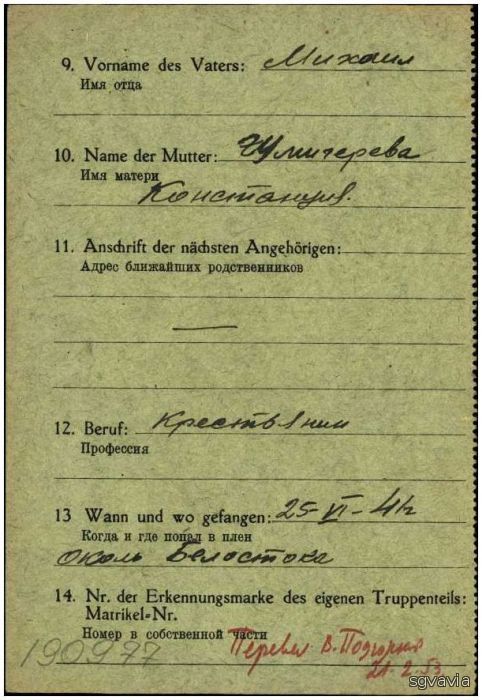 9. Vorname des Vaters: Михаил
Имя отца
10. Name der Mutter: Чумичерева
Имя матери
Констанция.
11. Anschrift der nächsten Angehörigen:
Адрес ближайших родственников
—
12. Beruf: крестьянин
Профессия
13 Wann und wo gefangen: 25-VI-41г
Когда и где попал в плен
околь Белостока
14. Nr. der Erkennungsmarke des eigenen Truppenteils:
Matrikel-Nr.
Номер в собственной части
190977
Перевел В. Подгорный
21.2.53
sgvavia